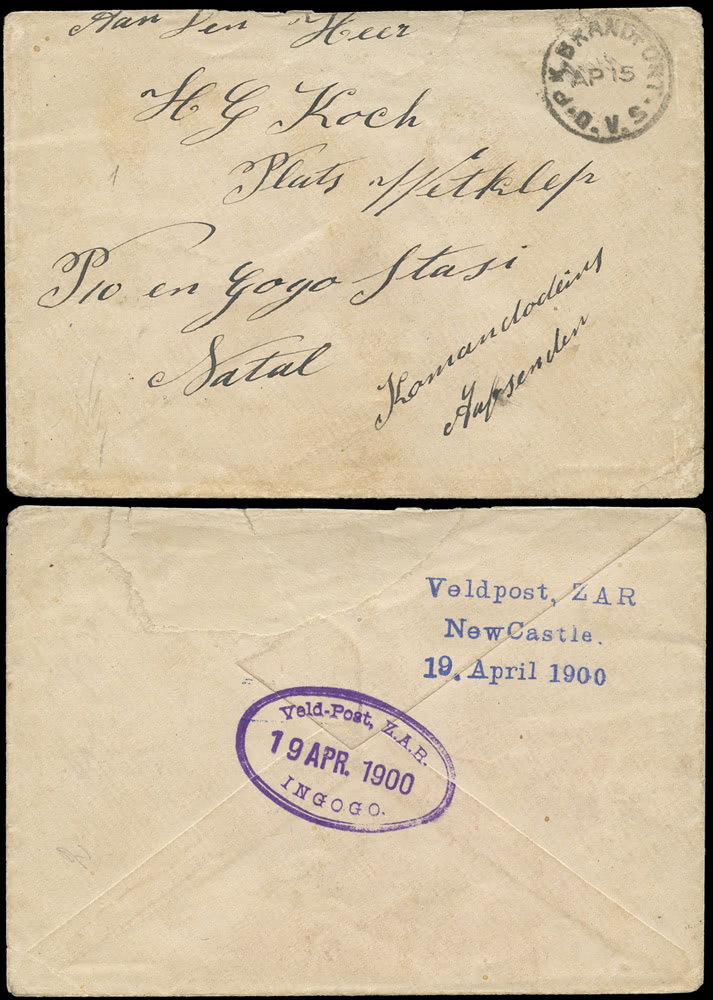 Aan Den Heer
H G Koch
Plats Witklep
P/o en Gogo Stasi
Natal
Komandodeins
Aufsenden
P.K. BRANDFORT.
AP 15
O.V.S.
Veldpost, ZAR
NewCastle.
19. April 1900
Veld-Post, Z.A.R.
19 APR. 1900
INGOGO.